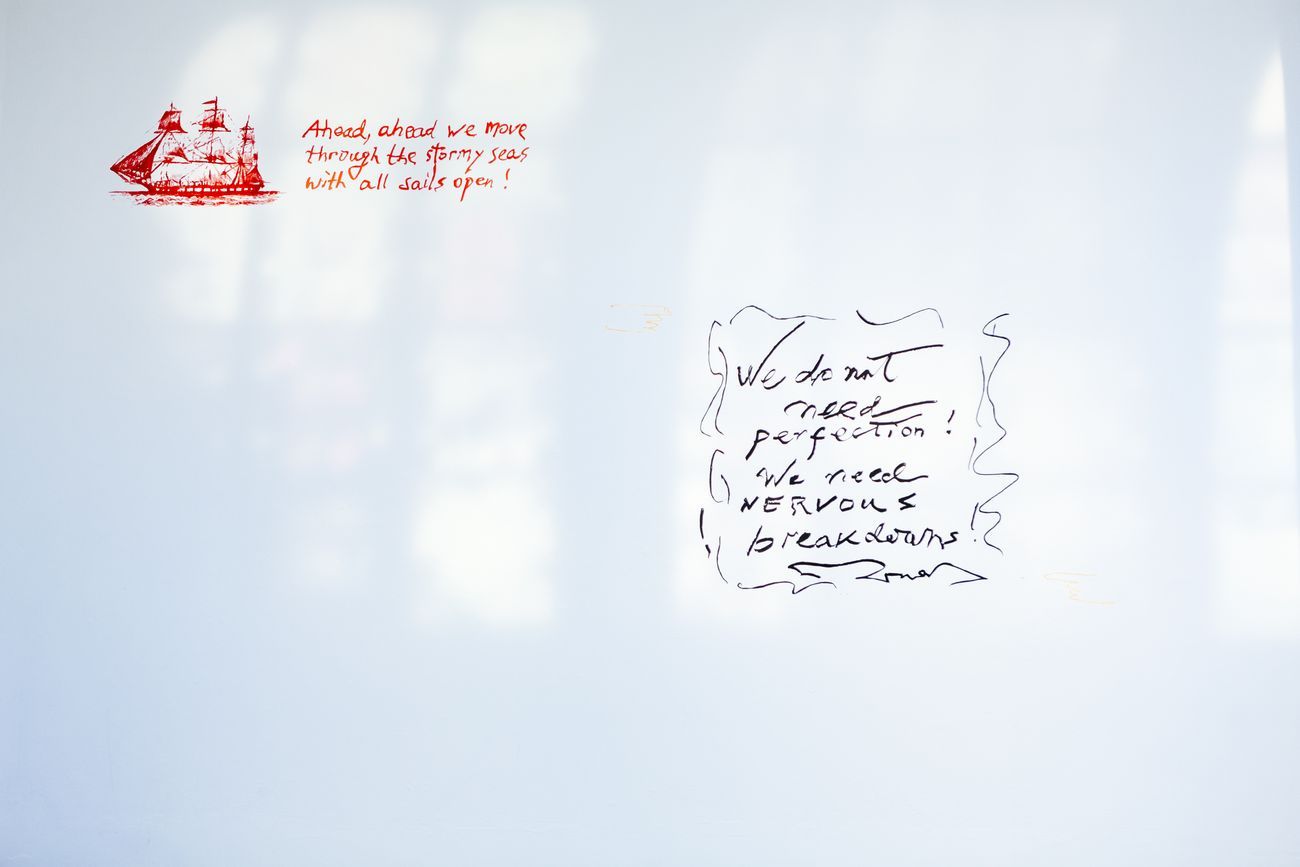 Ahead, ahead we move
through the stormy seas
with all sails open !
We do not
need
perfection !
We need
NERVOUS
breakdowns !